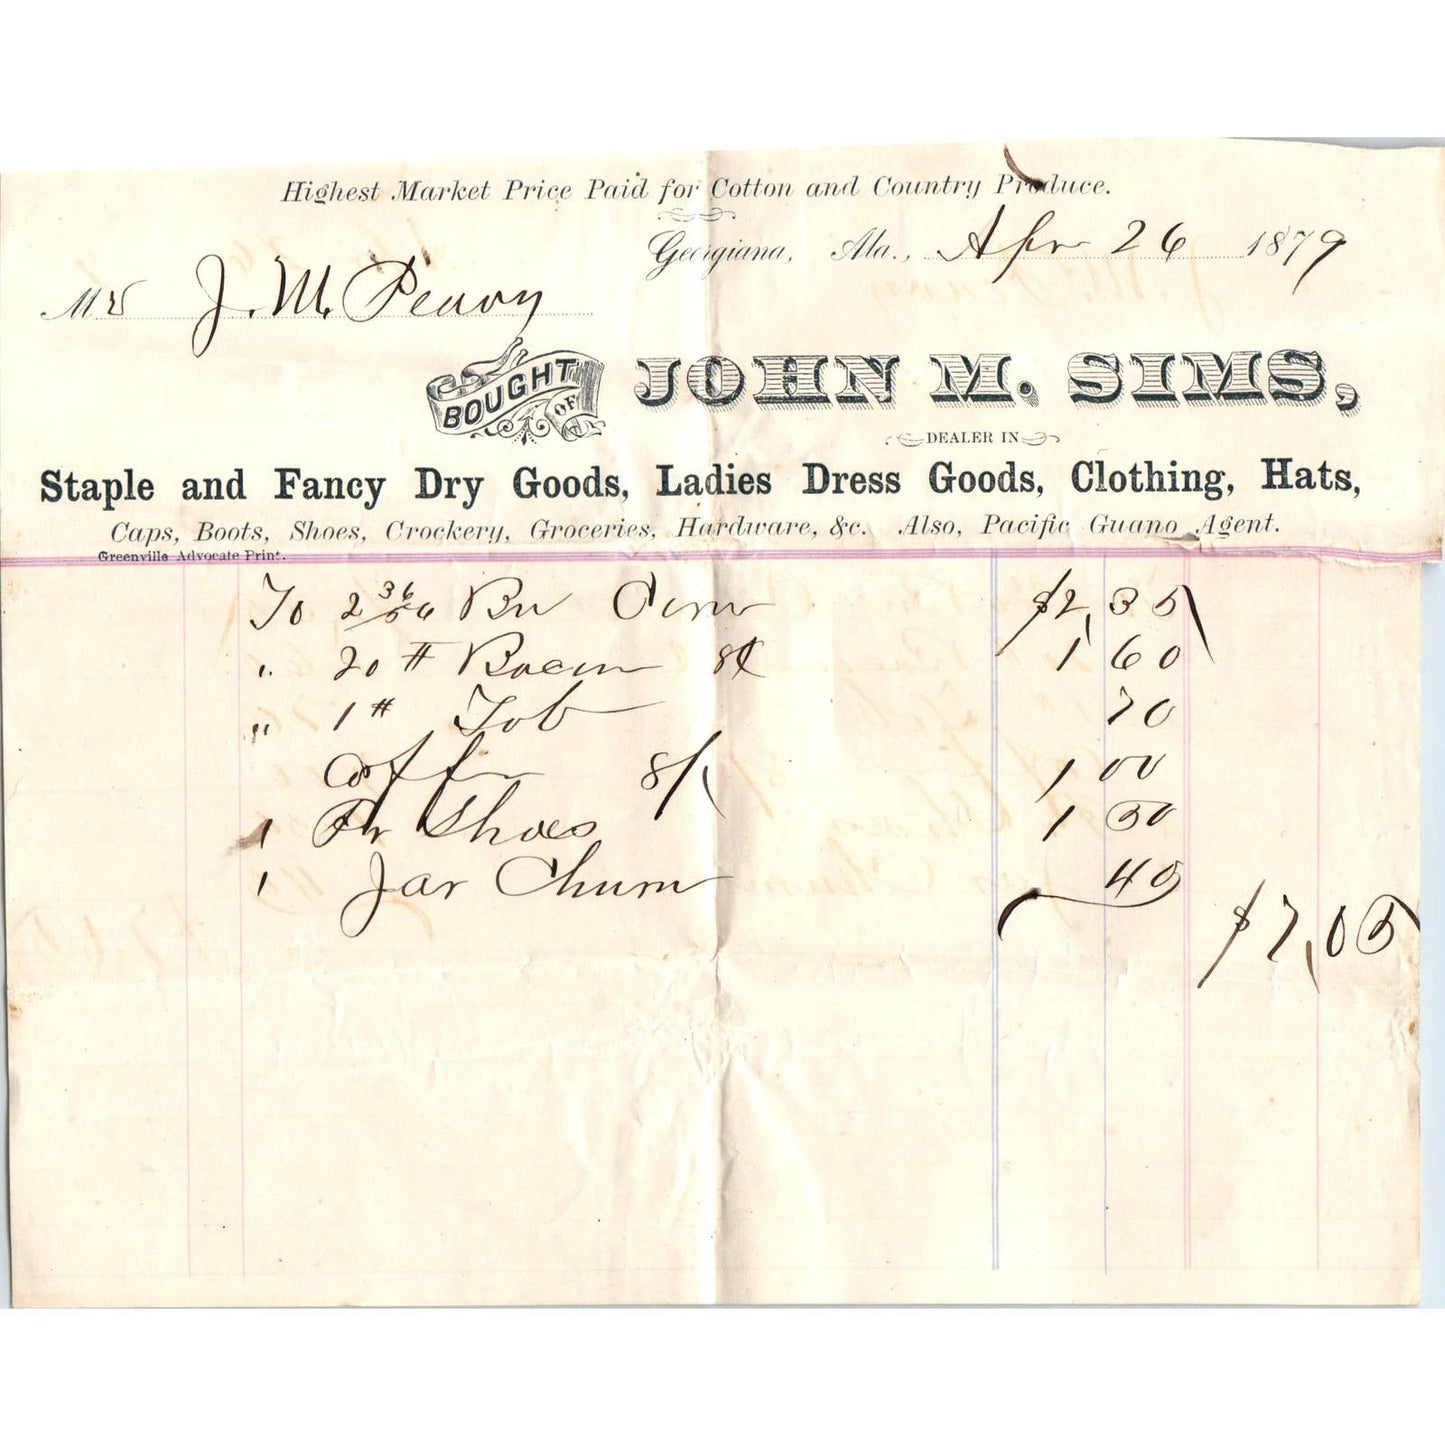 Highest Market Price Paid for Cotton and Country Produce.
Georgiana, Ala., Apr 26 1879
Mr J. M. Peavy
BOUGHT OF JOHN M. SIMS,
DEALER IN
Staple and Fancy Dry Goods, Ladies Dress Goods, Clothing, Hats,
Caps, Boots, Shoes, Crockery, Groceries, Hardware, &c. Also, Pacific Guano Agent.
Greenville Advocate Print.
To 2 36/56 Bu Corn $2,35
" 20 # Bacon 8¢ 1 60
" 1 # Tob 70
Coffee 8/ 1 00
1 Pr Shoes 1 00
1 Jar Churn 40
$7,05